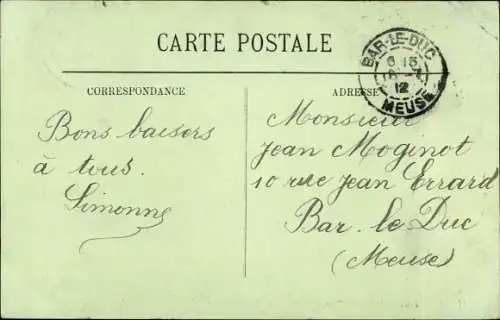 CARTE POSTALE
CORRESPONDANCE
ADRESSE
BAR-LE-DUC
12
MEUSE
Bons baisers
à tous.
Simonne
Monsieur
Jean Moginot
10 rue Jean Errard
Bar. le Duc
(Meuse)